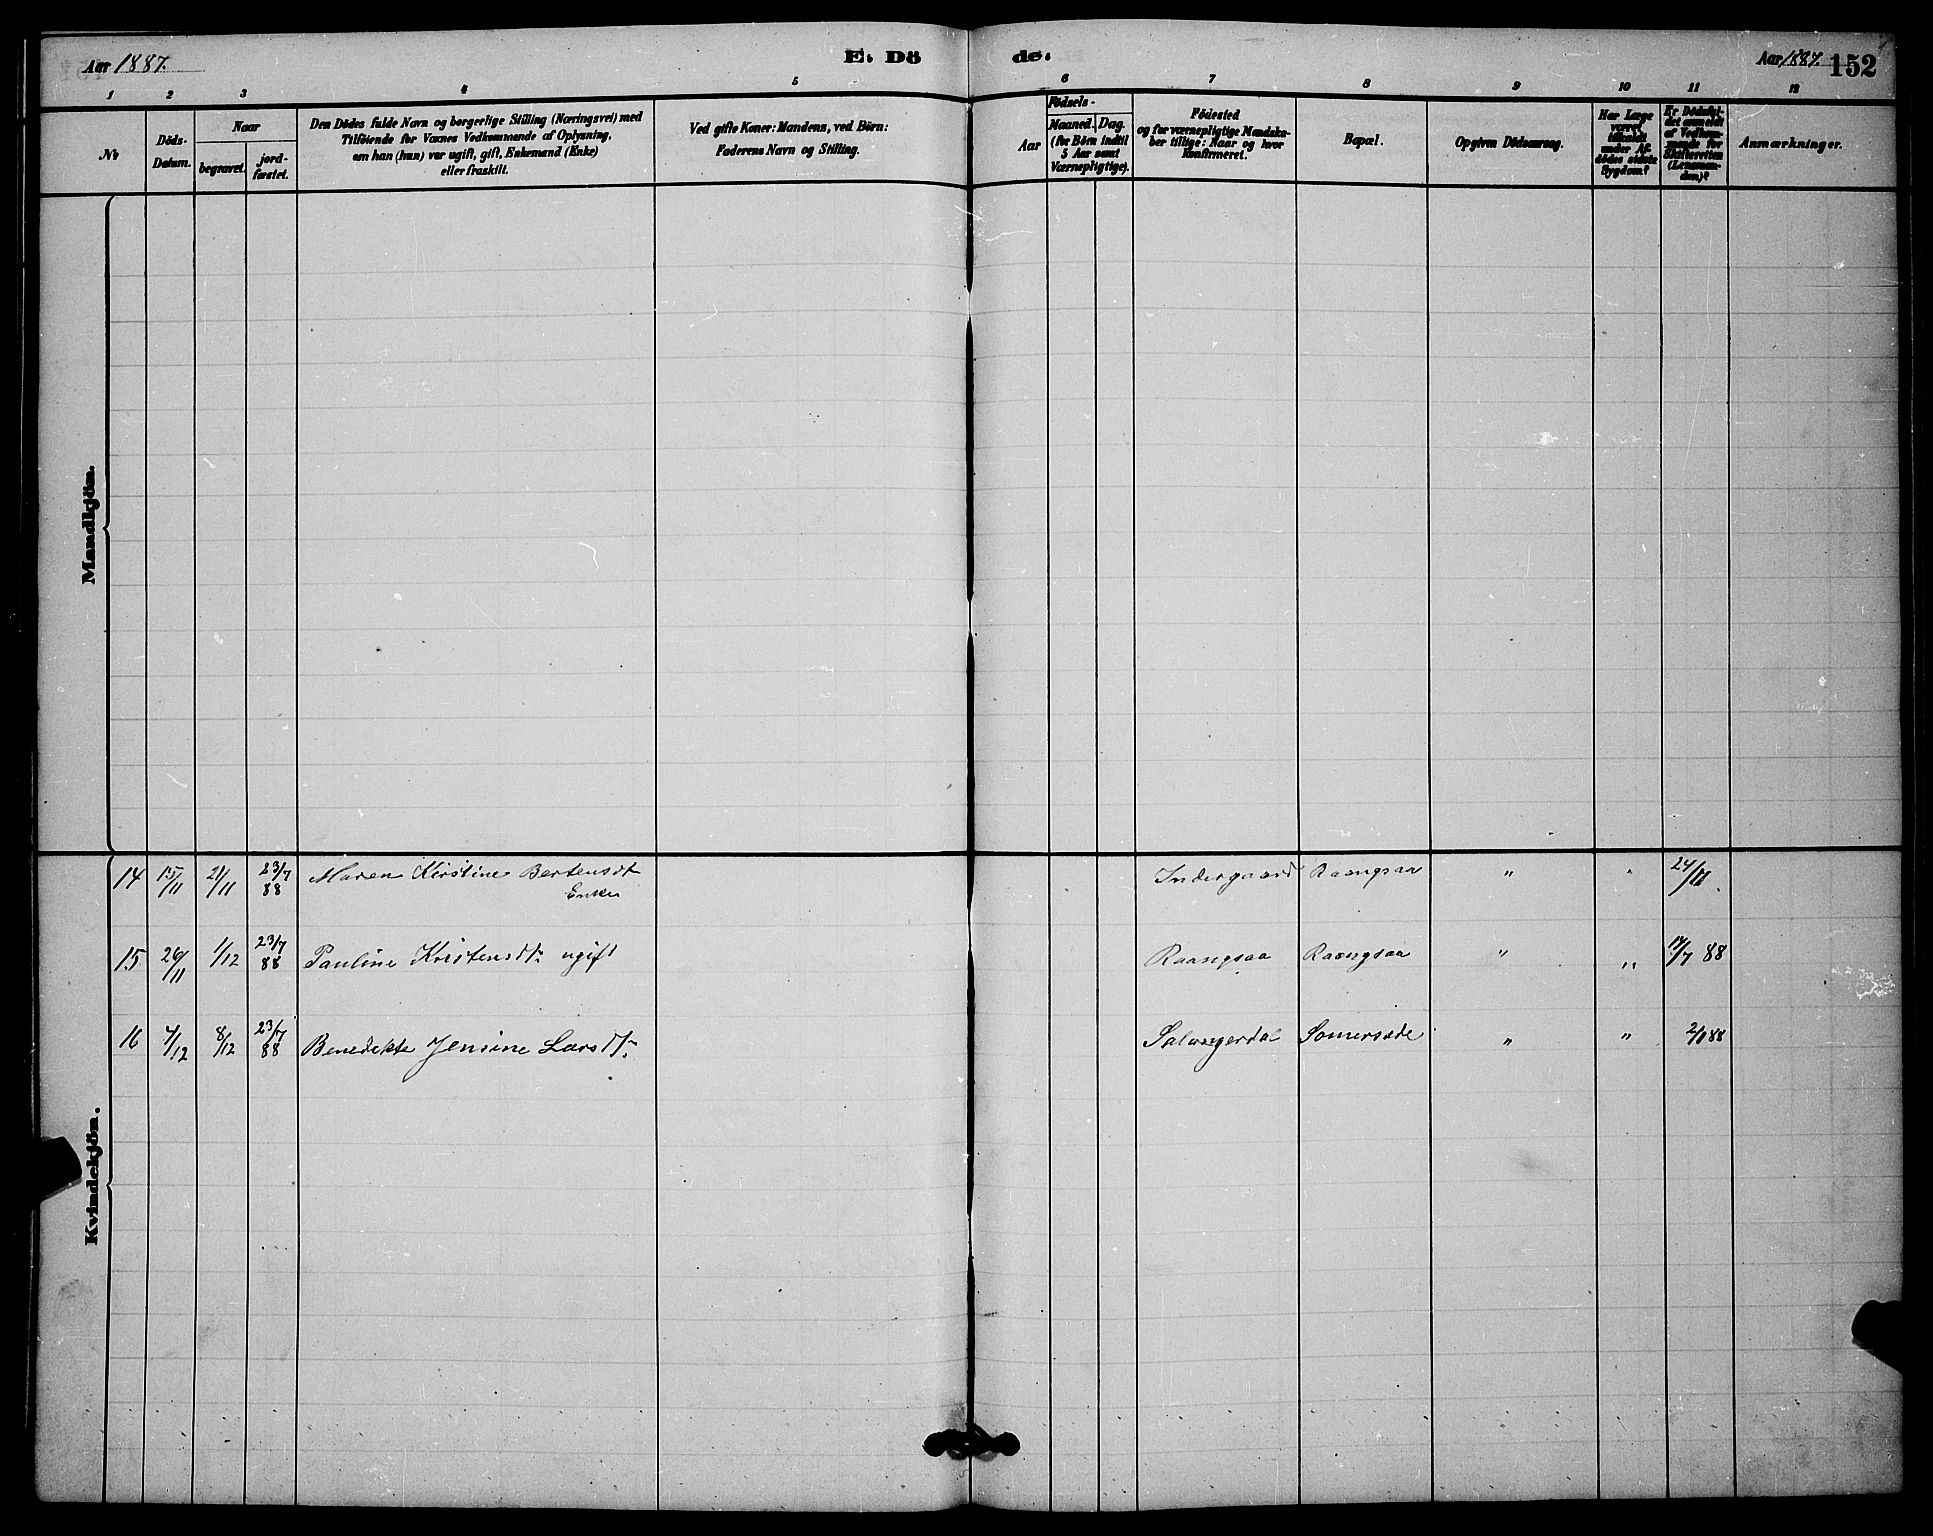 Aar 1887.
E. Dö
de.
Aar 1887.
152
1 2 3 4 5 6 7 8 9 10 11 12
No
Döds-
Datum.
Naar
begravet.
jord-
fæstet.
Den Dödes fulde Navn og borgerlige Stilling (Næringsvei) med
Tilföiende for Vaxnes Vedkommende af Oplysning,
om han (hun) var ugift, gift, Enkemand (Enke)
eller fraskilt.
Ved gifte Koner: Mandens, ved Börn:
Faderens Navn og Stilling.
Födsels-
Aar
Maaned.
Dag.
(for Börn indtil
5 Aar samt
Værnepligtige).
Födested
og for værnepligtige Mandska-
ber tillige: Naar og hvor
Konfirmeret.
Bopæl.
Opgiven Dödsaarsag.
Har Læge
været
tilkaldt
under Af-
dödes sidste
Sygdom?
Er Dödsfal-
det anmeldt
af Vedkom-
mende for
Skifteretten
(Lensman-
den)?
Anmærkninger.
Mandkjön.
Kvindekjön.
14 15/11 21/11 23/7 88 Maren Kirstine Bertensdt Indergaard Raangsaa " "
Enke
15 26/11 1/12 23/7 88 Pauline Kristensdt: ugift Raangsaa Raangsaa " " 17/7 88
16 4/12 8/12 23/7 88 Benedekte Jensine Larsdt: Salangerdal Somersæde " " 2/1 88